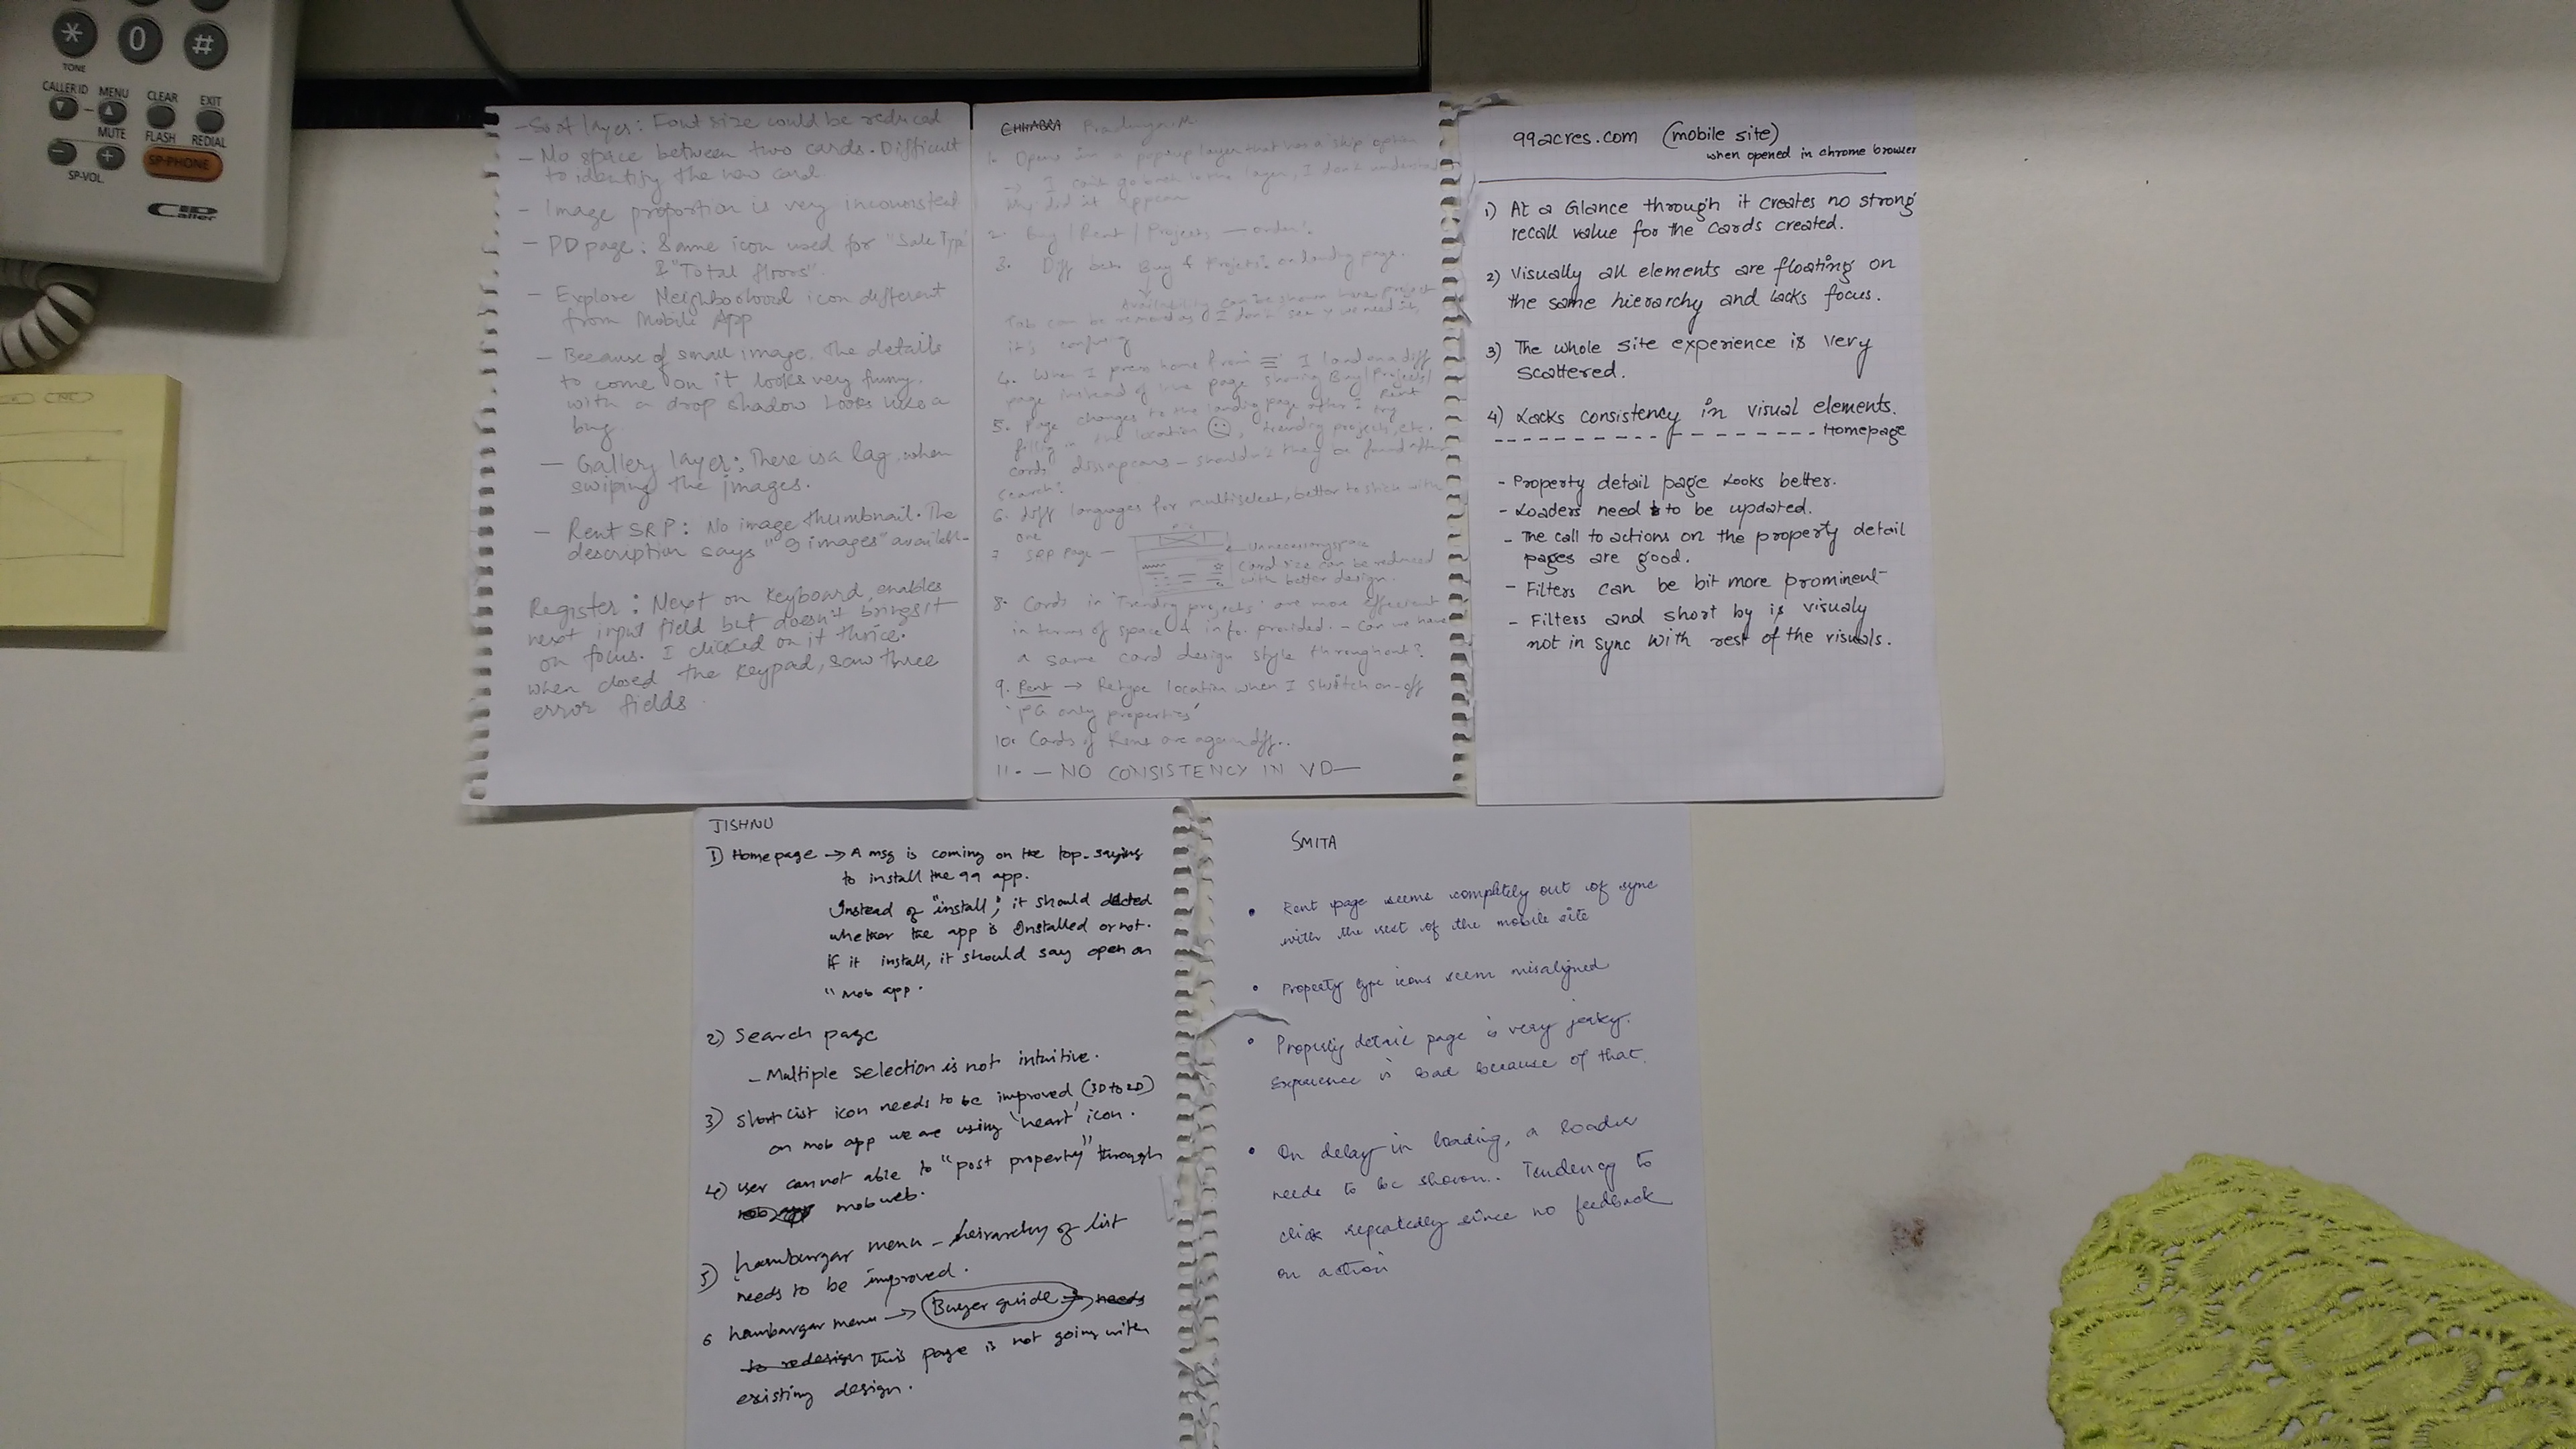 *
0
#
TONE
CALLER ID MENU CLEAR EXIT
MUTE FLASH REDIAL
SP-PHONE
SP-VOL.
CID
Caller
- Sort layer: Font size could be reduced
- No space between two cards. Difficult
to identify the new card.
- Image proportion is very inconsistent
- PD page: Same icon used for "Sale Type"
& "Total floors".
- Explore Neighborhood icon different
from Mobile App
- Because of small image. The details
to come on it looks very funny.
with a drop shadow looks like a
bug
- Gallery layer: There is a lag, when
swiping the images.
- Rent SRP: No image thumbnail. The
description says "9 images" available-
Register: Next on Keyboard, enables
next input field but doesn't brings it
on focus. I clicked on it thrice.
when closed the keypad, saw three
error fields.
CHHABRA Pradnya M.
1. Opens in a popup layer that has a skip option
→ I can't go back to the layer, I don't understand
why did it appear
2. Buy / Rent / Projects — order?
3. Diff betn. Buy & Projects? on landing page.
Availability can be shown here, project
Tab can be removed as I don't see y we need it,
it's confusing
4. When I press home from ≡ I land on a diff
page instead of live page showing Buy/Projects/
Rent
5. Page changes to the landing page after I try
filling in the location ☹, trending projects, etc.
cards dissapears - shouldn't they be found after
search?
6. diff languages for multiselect, better to stick with
one
7 SRP Page — Unnecessary space
Card size can be reduced
with better design.
8. Cards in 'Trending projects' are more efficient
in terms of space & info. provided. - Can we have
a same card design style throughout?
9. Rent → Retype location when I switch on-off
'PG only properties'
10. Cards of Rent are again diff..
11. — NO CONSISTENCY IN VD—
99acres.com (mobile site)
when opened in chrome browser
1) At a Glance through it creates no strong
recall value for the cards created.
2) Visually all elements are floating on
the same hierarchy and lacks focus.
3) The whole site experience is very
scattered.
4) Lacks consistency in visual elements.
Homepage
- Property detail page looks better.
- Loaders need to be updated.
- The call to actions on the property detail
pages are good.
- Filters can be bit more prominent
- Filters and short by is visualy
not in sync with rest of the visuals.
JISHNU
1) Homepage → A msg is coming on the top saying
to install the 99 app.
Instead of "install", it should detected
whether the app is Installed or not.
if it install, it should say open on
"Mob app.
2) Search page
- Multiple selection is not intuitive.
3) Short list icon needs to be improved (3D to 2D)
on mob app we are using 'heart' icon.
4) user cannot able to "post property" through
mob app mobweb.
5) hamburgar menu - heirarchy of list
needs to be improved.
6 hambargar menu → Buyer guide → needs
to redesign This page is not going with
existing design.
SMITA
• Rent page seems completely out of sync
with the rest of the mobile site
• Property type icons seem misaligned
• Property detail page is very jerky.
Experience is bad because of that.
• On delay in loading, a loader
needs to be shown.. Tendency to
click repeatedly since no feedback
on action